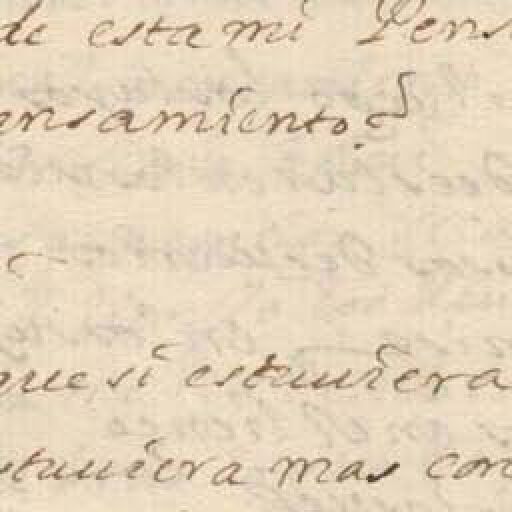 de esta mi Pens
ensamiento?
que si estuuiera
stuuiera mas con